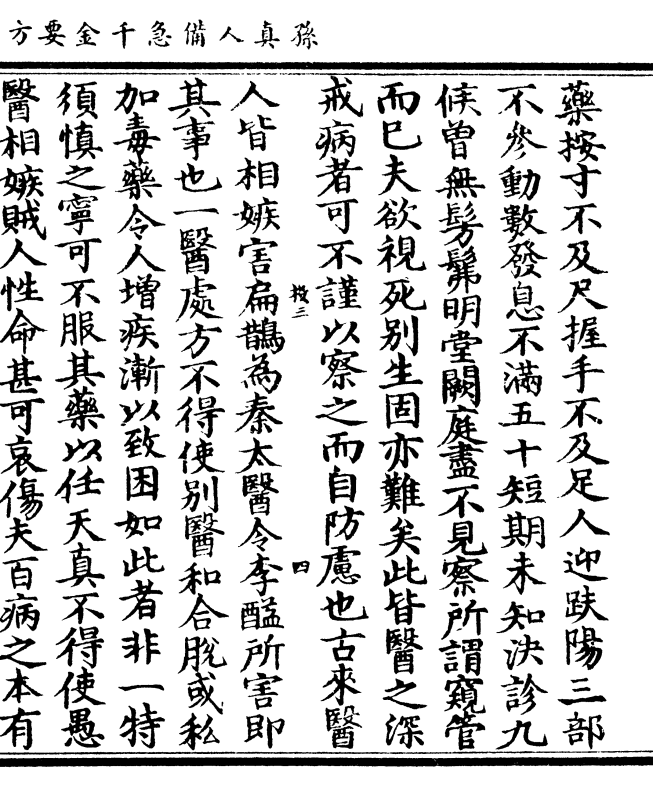 孫真人備急千金要方
藥按寸不及尺握手不及足人迎趺陽三部
不參動數發息不滿五十短期未知決診九
候曾無髣髴明堂闕庭盡不見察所謂窺管
而已夫欲視死别生固亦難矣此皆醫之深
戒病者可不謹以察之而自防慮也古來醫
校三
四
人皆相嫉害扁鵲為秦太醫令李醯所害即
其事也一醫處方不得使别醫和合脫或私
加毒藥令人增疾漸以致困如此者非一特
須慎之寧可不服其藥以任天真不得使愚
醫相嫉賊人性命甚可哀傷夫百病之本有